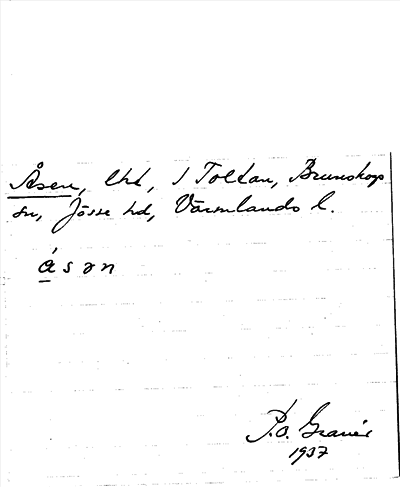 Åsen, lht, 1 Toltan, Brunskogs
sn, Jösse hd, Värmlands l.
ǻsən
P.O. Graner
1937